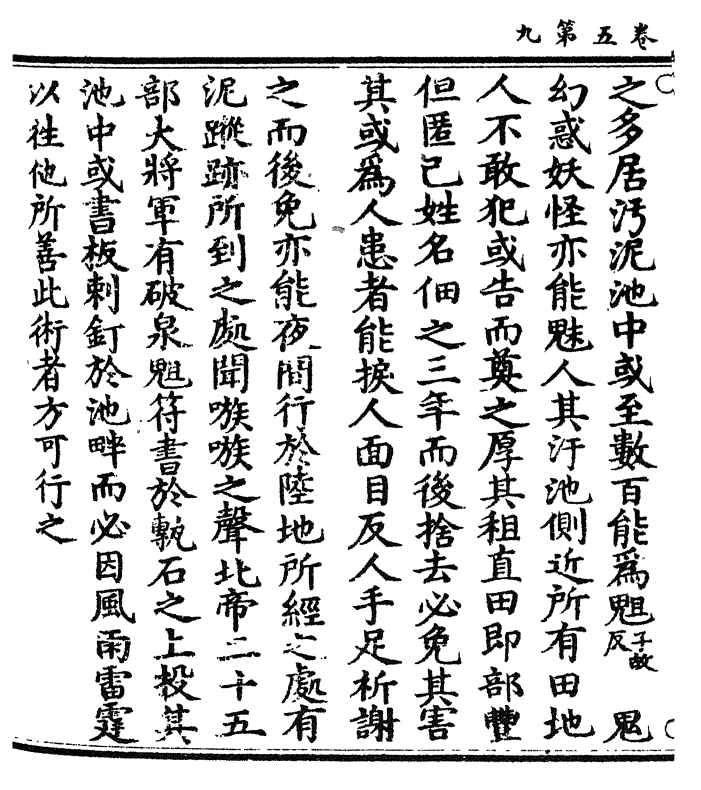 卷五第九
之多居汚泥池中或至數百能爲子故反鬼
幻惑妖怪亦能魅人其汙池側近所有田地
人不敢犯或告而奠之厚其租直田即部豐
但匿己姓名佃之三年而後捨去必免其害
其或爲人患者能捩人面目反人手足祈謝
之而後免亦能夜間行於陸地所經之處有
泥蹤跡所到之處聞嗾嗾之聲北帝二十五
部大將軍有破泉符書於甎石之上投其
池中或書板刺釘於池畔而必因風雨雷霆
以往他所善此術者方可行之